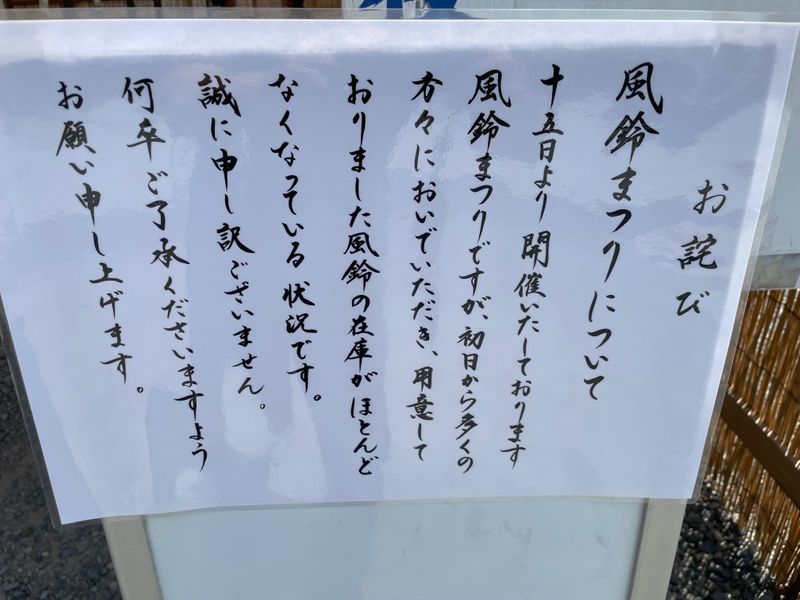 お詫び
風鈴まつりについて
十五日より開催いたしております
風鈴まつりですが、初日から多くの
方々においでいただき、用意して
おりました風鈴の在庫がほとんど
なくなっている状況です。
誠に申し訳ございません。
何卒ご了承くださいますよう
お願い申し上げます。